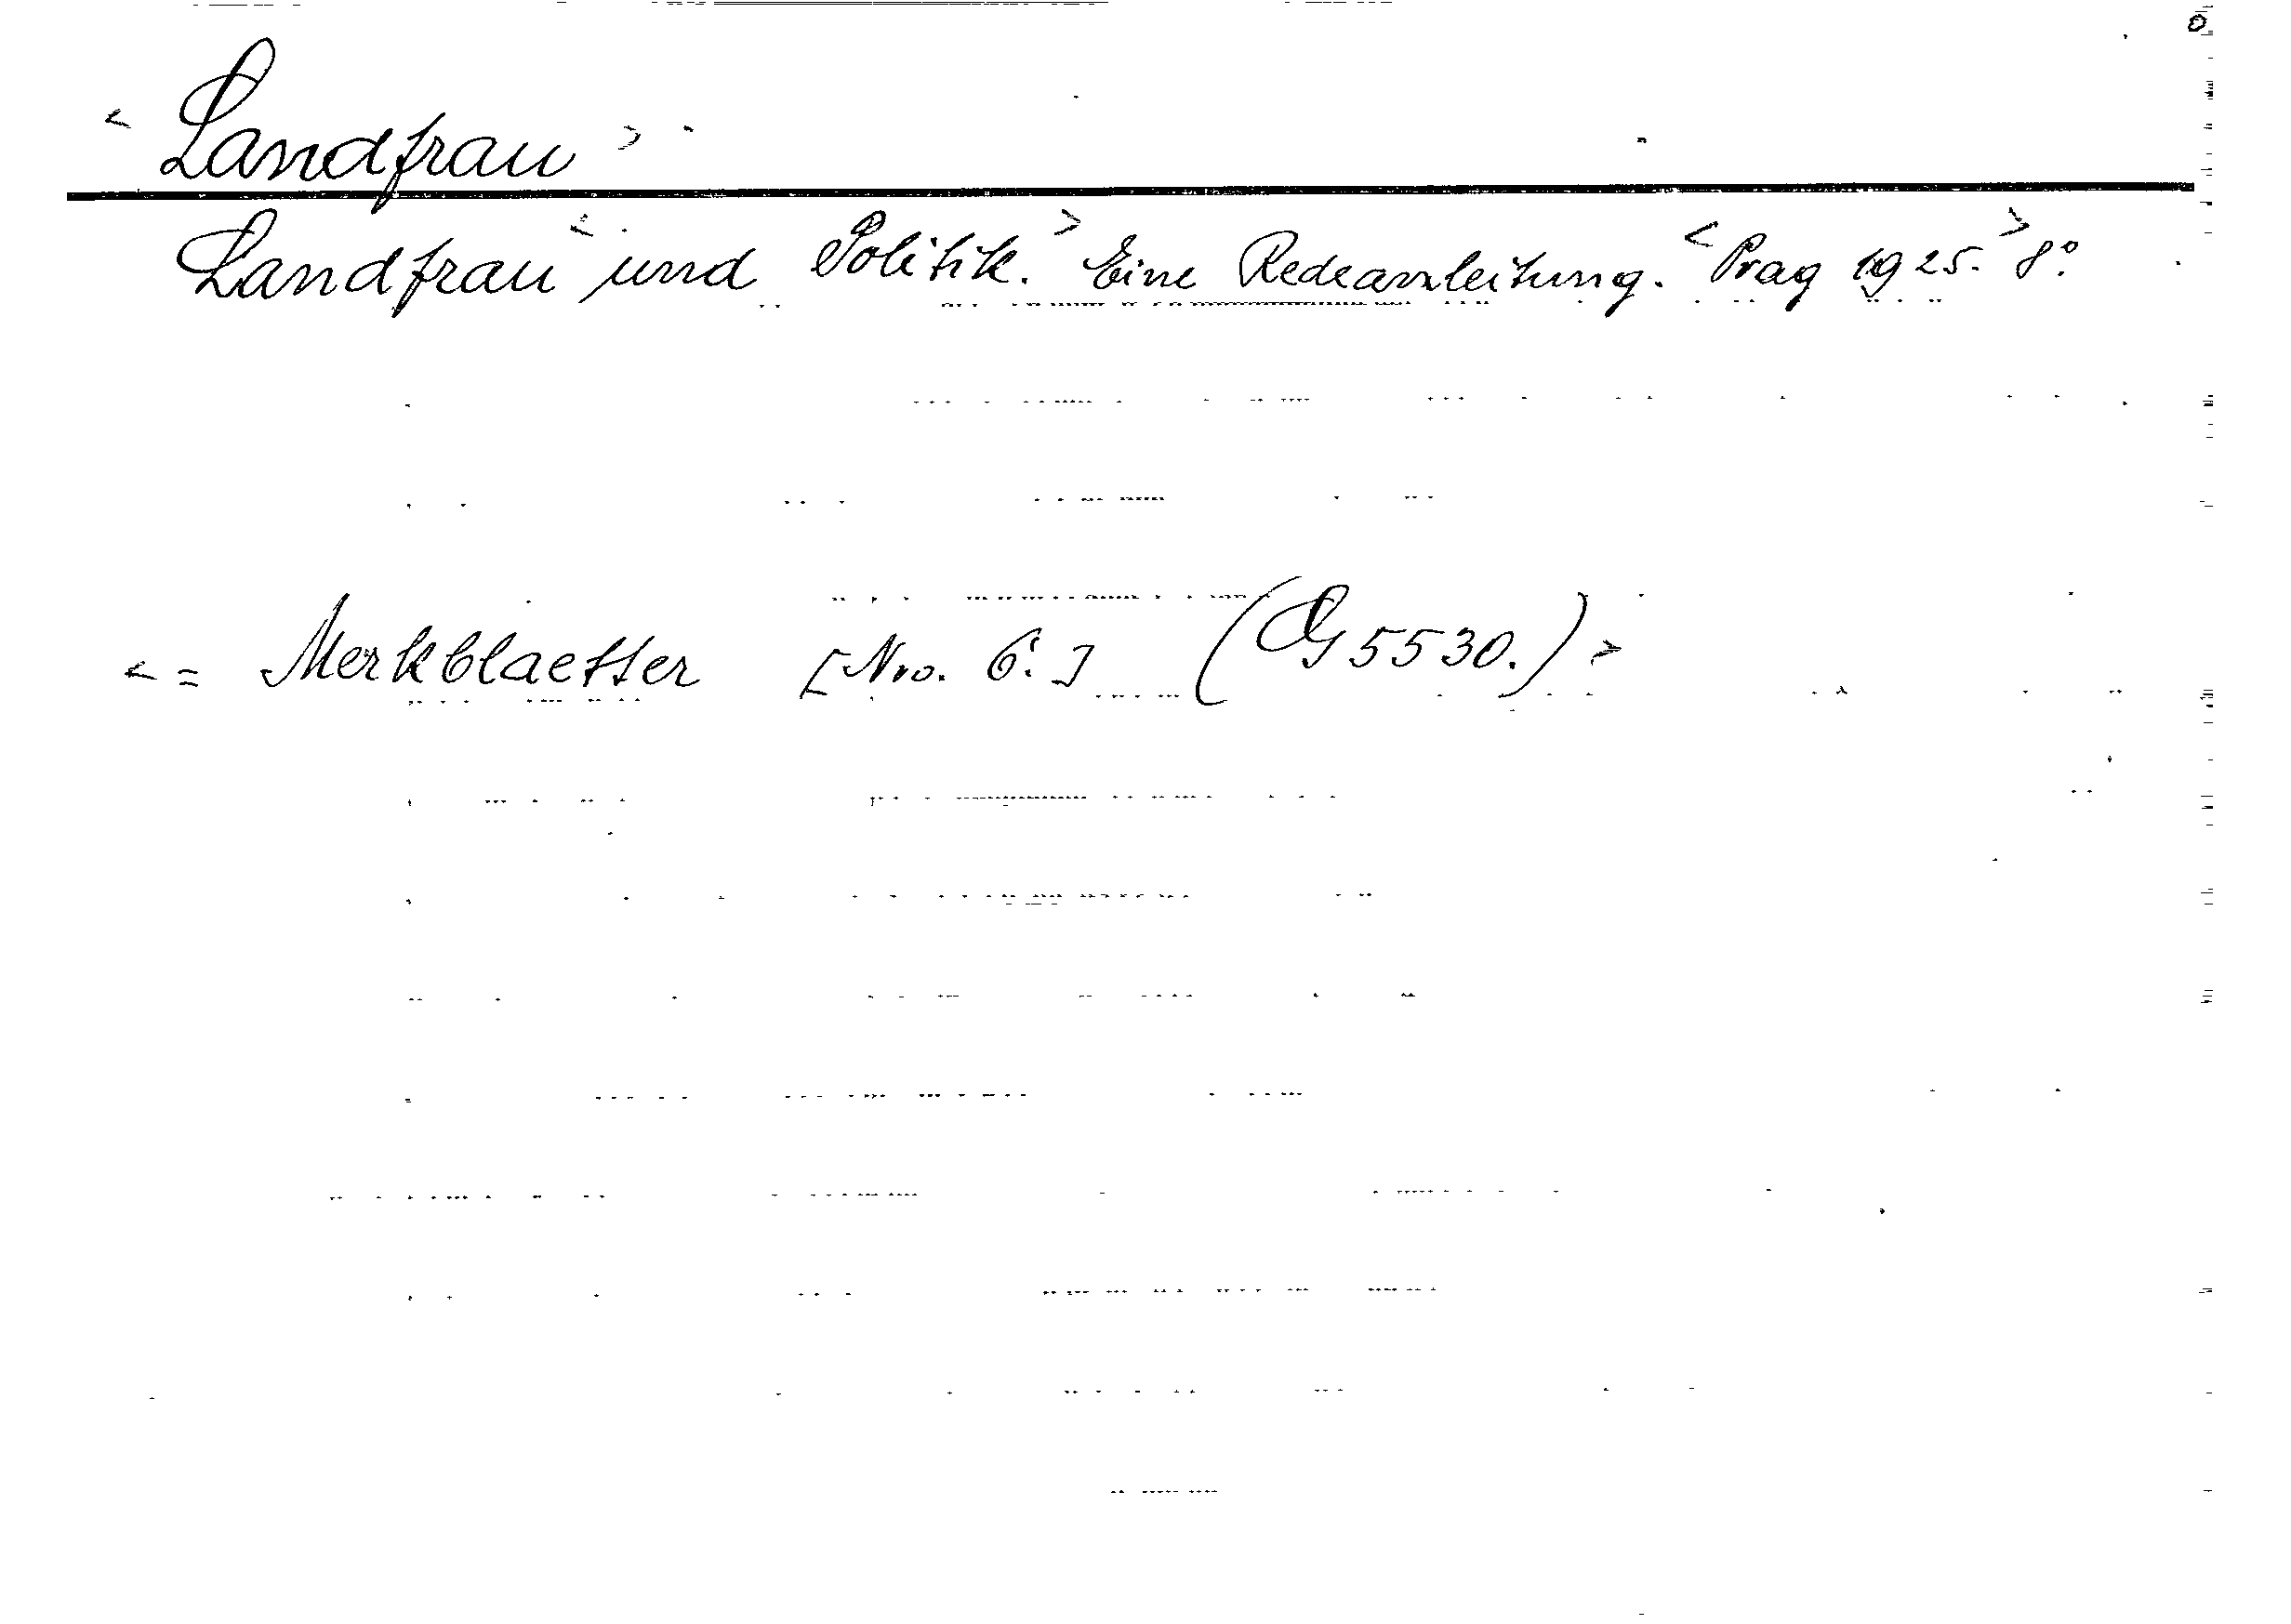 < Landfrau >
Landfrau < und Politik. > Eine Redeanleitung. < Prag 1925. > 8°.
< = Merkblaetter [Nro. 6.] (G 5530.) >